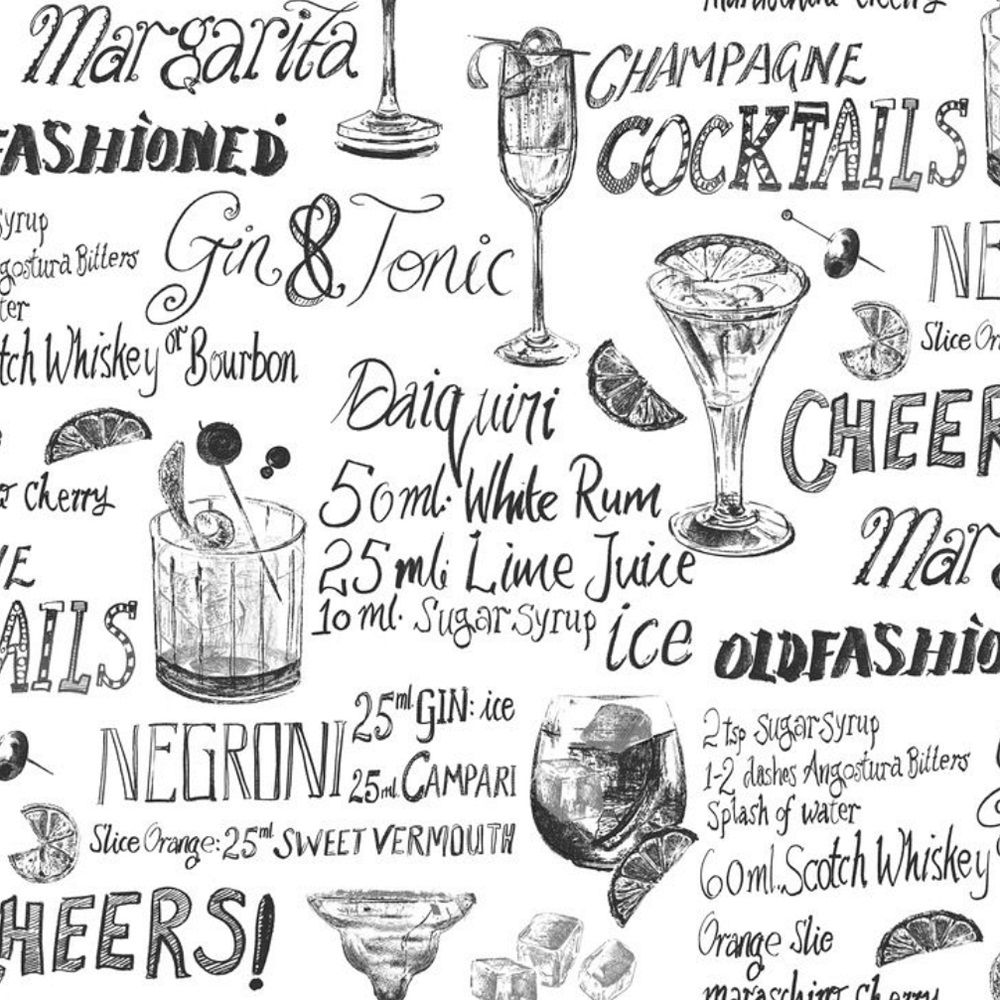 maraschino cherry
Margarita
CHAMPAGNE
COCKTAILS
FASHIONED
Syrup
ngostura Bitters
ter
Gin & Tonic
NE
Slice Or
tch Whiskey or Bourbon
Daiquiri
CHEER
o cherry
50ml. White Rum
25 ml. Lime Juice
10 ml. Sugar Syrup ice
Mar
NE
AILS
OLDFASHIO
25ml GIN: ice
NEGRONI
25ml CAMPARI
Slice Orange: 25ml SWEET VERMOUTH
2 tsp Sugar Syrup
1-2 dashes Angostura Bitters
Splash of water
60ml. Scotch Whiskey
HEERS!
Orange Slie
maraschino cherry